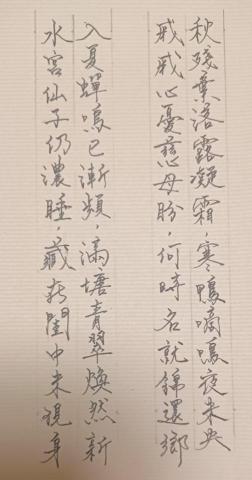 秋殘葉落露凝霜,寒鴨啼鳴夜未央
戚戚心憂慈母盼,何時名就錦還鄉
入夏蟬鳴已漸頻,滿塘青翠煥然新
水宮仙子仍濃睡,藏於閨中未現身